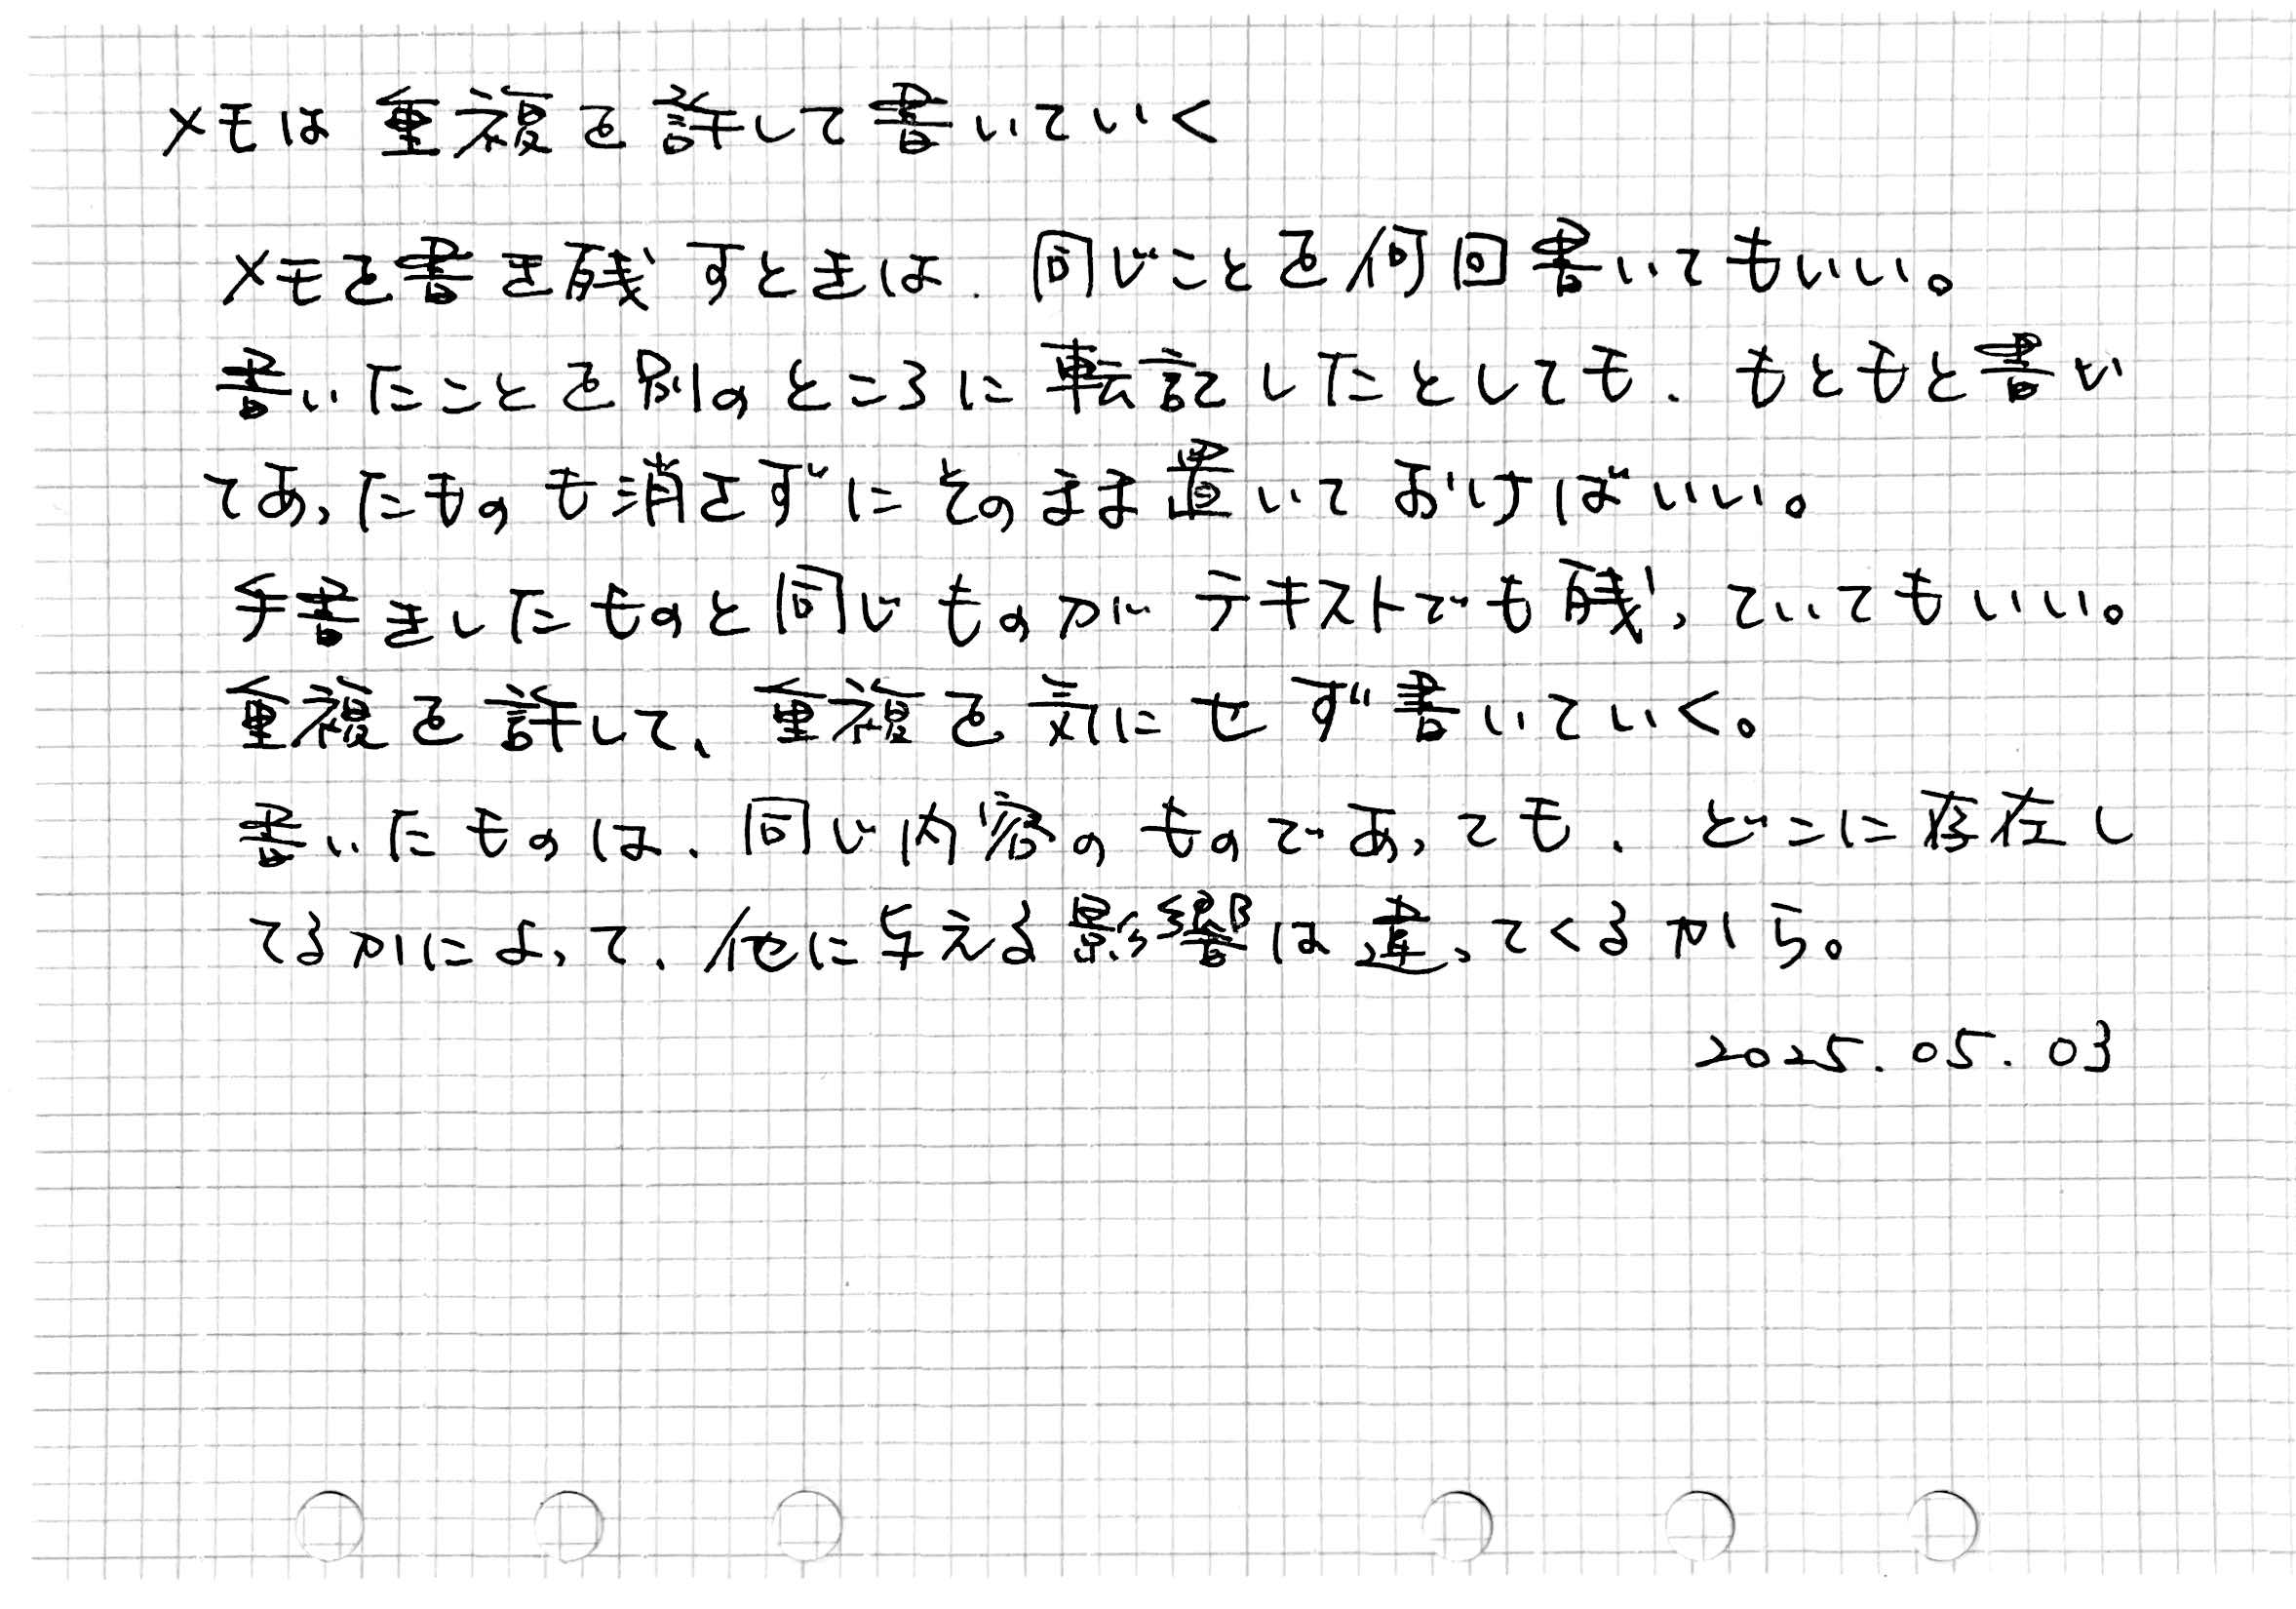 メモは重複を許して書いていく
メモを書き残すときは、同じことを何回書いてもいい。
書いたことを別のところに転記したとしても、もともと書い
てあったものも消さずにそのまま置いておけばいい。
手書きしたものと同じものがテキストでも残っていてもいい。
重複を許して、重複を気にせず書いていく。
書いたものは、同じ内容のものであっても、どこに存在し
てるかによって、他に与える影響は違ってくるから。
2025.05.03